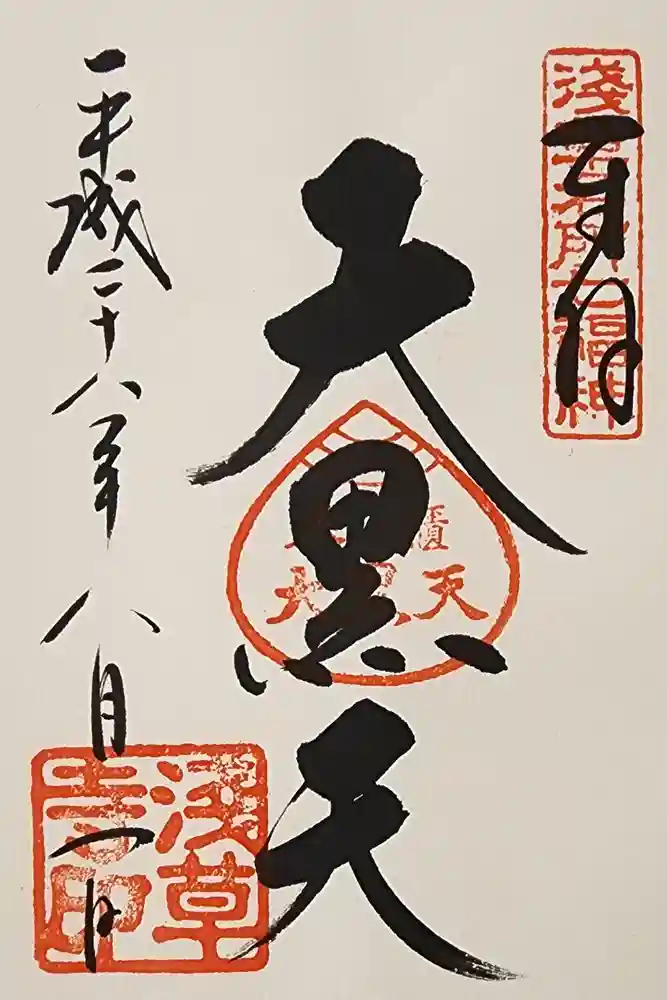 奉拝
淺草名所七福神
大黒天
平成二十八年八月一日
淺草寺印